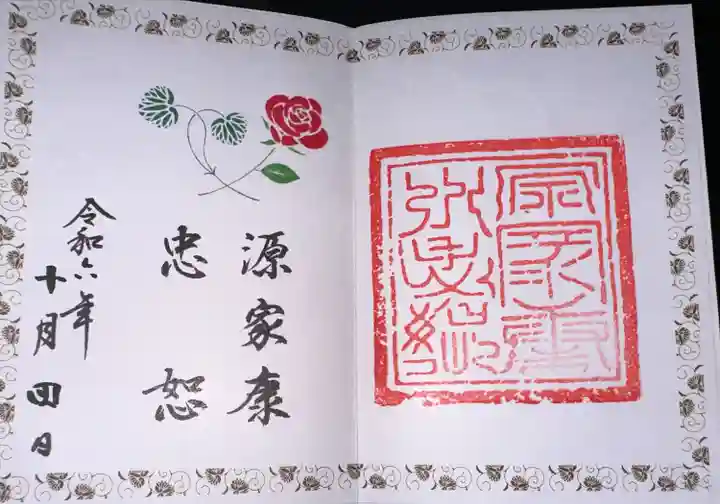 源家康
忠恕
令和六年
十月四日